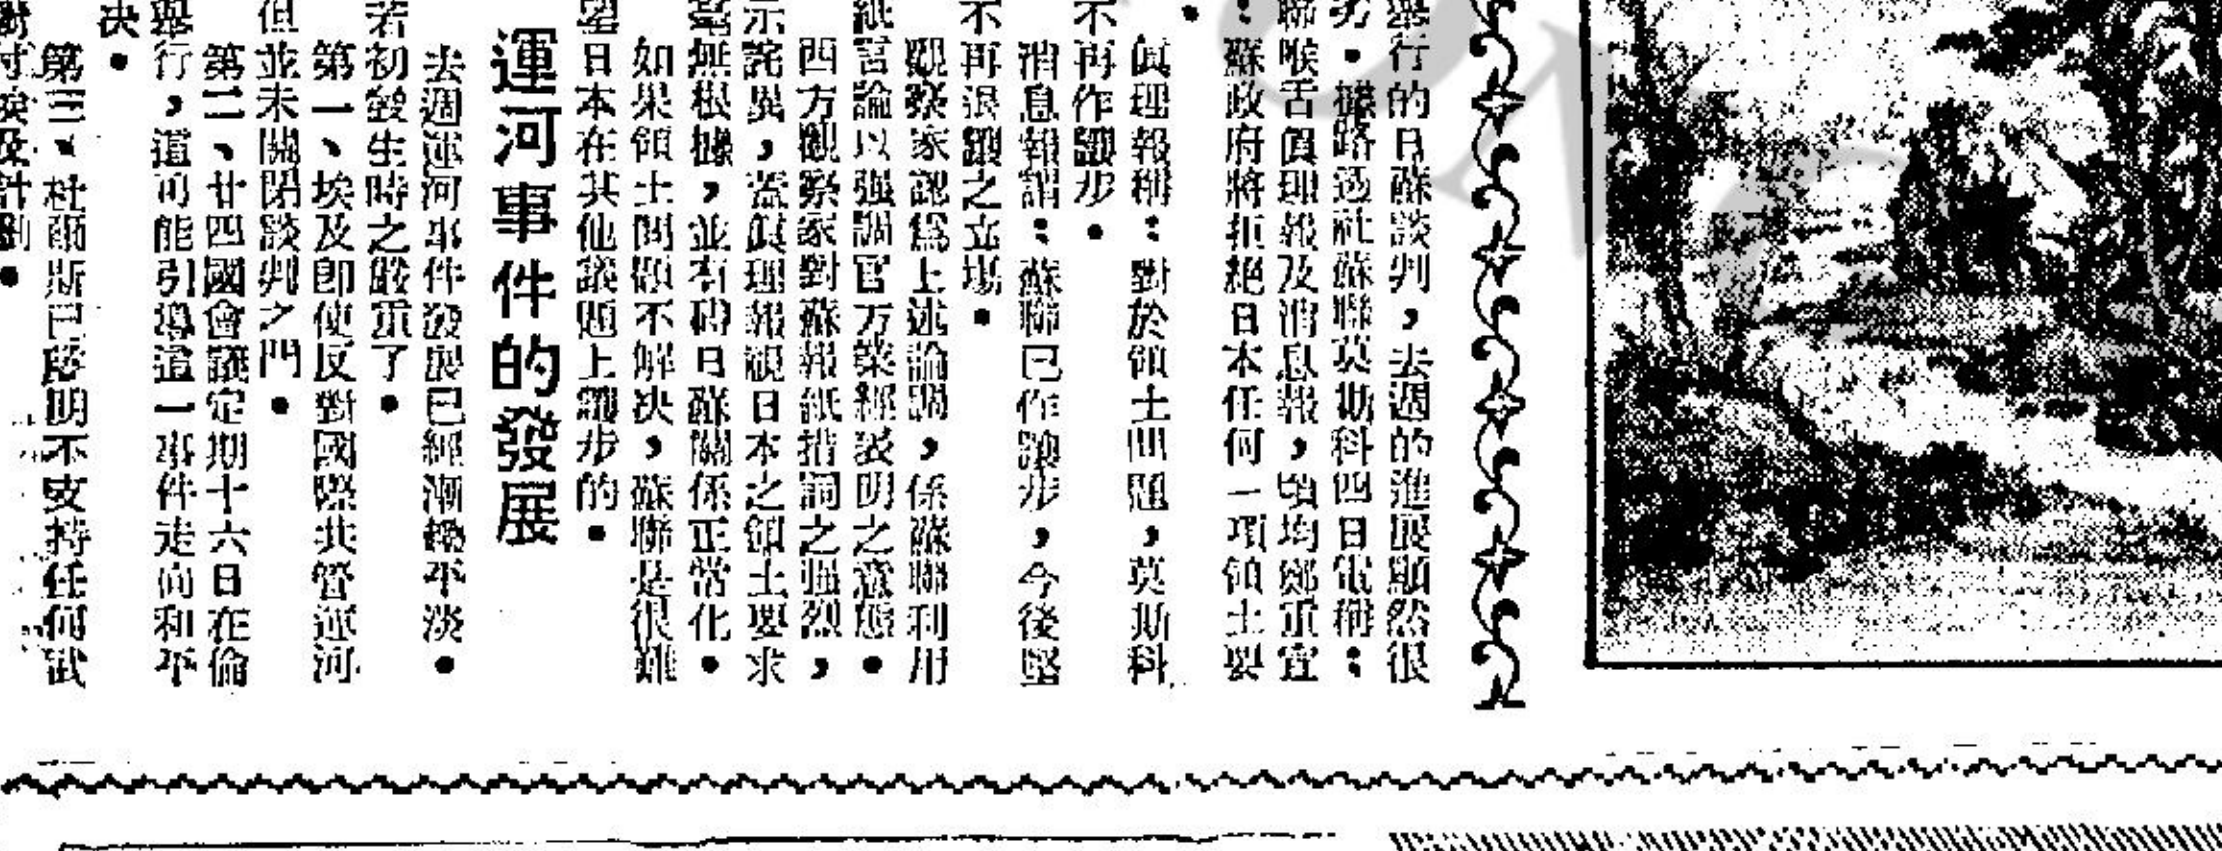 舉行的日蘇談判，去週的進展顯然很
劣。據路透社蘇聯莫斯科四日電稱：
聯喉舌眞理報及消息報，頃均鄭重宣
：蘇政府將拒絕日本任何一項領土要
。
眞理報稱：對於領土問題，莫斯科
不再作讓步。
消息報謂：蘇聯已作讓步，今後堅
不再退讓之立場。
觀察家認爲上述論調，係蘇聯利用
紙言論以强調官方業經表明之意態。
四方觀察家對蘇報紙措詞之强烈，
示詫異，蓋眞理報視日本之領土要求
毫無根據，並有碍日蘇關係正常化。
如果領土問題不解決，蘇聯是很難
望日本在其他議題上讓步的。
運河事件的發展
去週運河事件發展已經漸趨平淡。
若初發生時之嚴重了。
第一、埃及卽使反對國際共管運河
但並未關閉談判之門。
第二、廿四國會議定期十六日在倫
舉行，這可能引導這一事件走向和平
決。
第三、杜爾斯已聲明不支持任何試
對付埃及計劃。